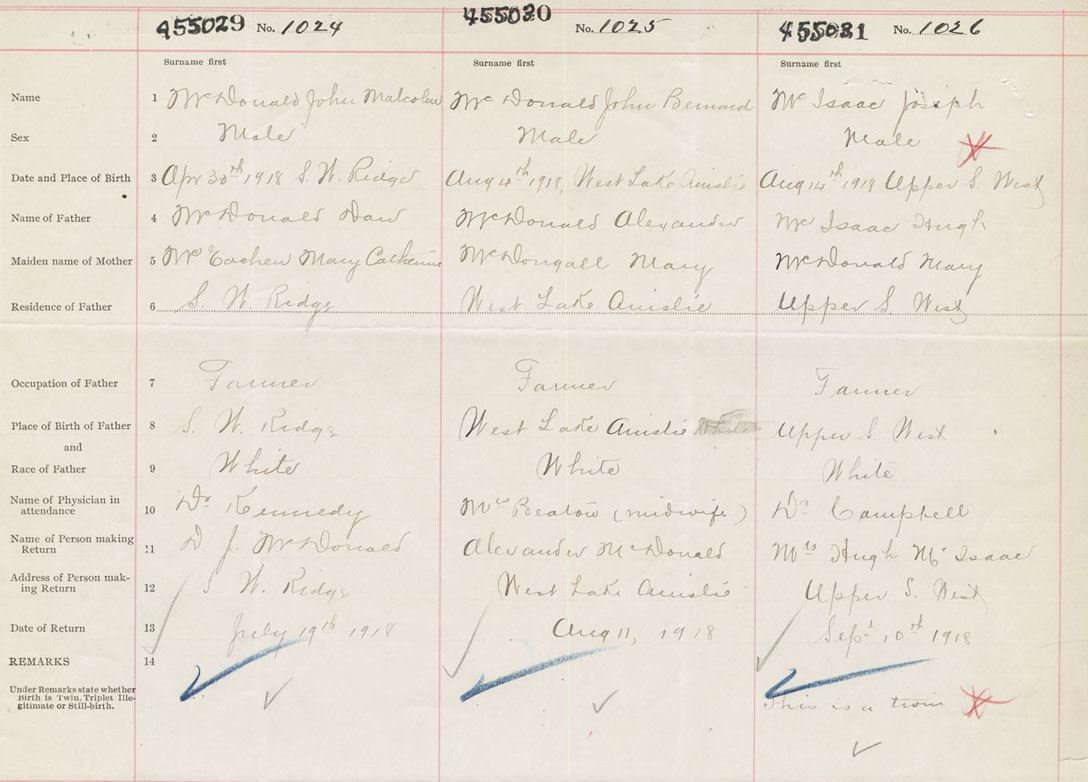 455029 No. 1024 455030 No. 1025 455031 No. 1026
Surname first Surname first Surname first
Name 1 McDonald John Malcolm McDonald John Bernard McIsaac Joseph
Sex 2 Male Male Male
Date and Place of Birth 3 Apr 30th 1918 S. W. Ridge Aug 4th 1918, West Lake Ainslie Aug 14th 1918 Upper S. West
Name of Father 4 McDonald Dan McDonald Alexander McIsaac Hugh
Maiden name of Mother 5 McEachen Mary Catherine McDougall Mary McDonald Mary
Residence of Father 6 S. W. Ridge West Lake Ainslie Upper S. West
Occupation of Father 7 Farmer Farmer Farmer
Place of Birth of Father 8 S. W. Ridge West Lake Ainslie Upper S. West
and
Race of Father 9 White White White
Name of Physician in
attendance 10 Dr Kennedy Mrs Beaton (midwife) Dr Campbell
Name of Person making
Return 11 D J. McDonald Alexander McDonald Mrs Hugh McIsaac
Address of Person mak-
ing Return 12 S. W. Ridge West Lake Ainslie Upper S. West
Date of Return 13 July 19th 1918 Aug 11, 1918 Sept 10th 1918
REMARKS 14
Under Remarks state whether
Birth is Twin, Triplet, Ille-
gitimate or Still-birth. This is a twin